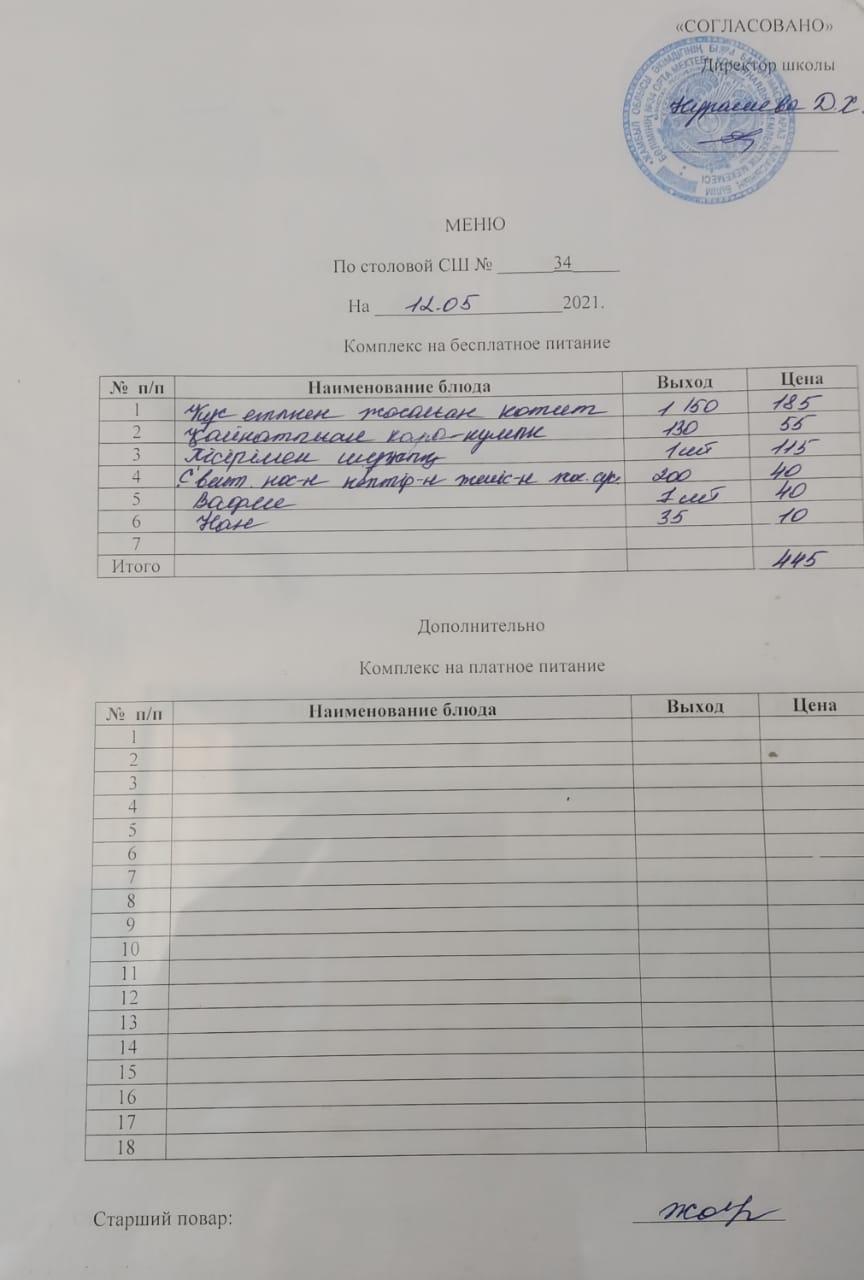 «СОГЛАСОВАНО»
Директор школы
Д.Х.
МЕНЮ
По столовой СШ № 34
На 12.05 2021.
Комплекс на бесплатное питание
№ п/п Наименование блюда Выход Цена
1 Құс етінен жасалған котлет 1/50 185
2 Қайнатылған қара-құмық 130 55
3 Пісірілген 1 шт 115
4 С вит. қос-н кептір-н жеміс-н жас. сус. 200 40
5 Вафли 1 шт 40
6 Нан 35 10
7
Итого 445
Дополнительно
Комплекс на платное питание
№ п/п Наименование блюда Выход Цена
1
2
3
4
5
6
7
8
9
10
11
12
13
14
15
16
17
18
Старший повар: